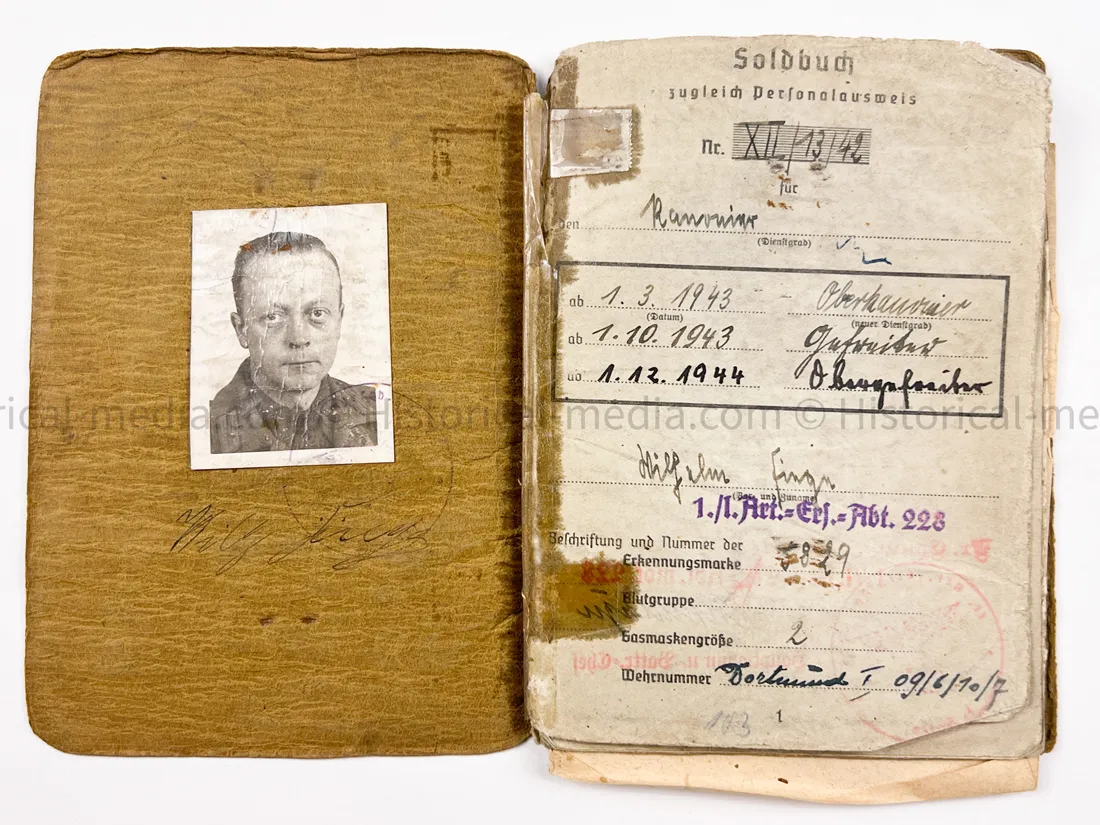 Soldbuch
zugleich Personalausweis
Nr. XII/13/42
für
den Kanonier
(Dienstgrad)
ab 1. 3. 1943 Oberkanonier
(Datum) (neuer Dienstgrad)
ab 1. 10. 1943 Gefreiter
ab 1. 12. 1944 Obergefreiter
Historical-media.com © Historical-media.com © Historical-me
Wilhelm
(Vor- und Zuname)
1./l. Art.=Ers.=Abt. 228
Beschriftung und Nummer der
Erkennungsmarke 5829
Blutgruppe
Gasmaskengröße 2
Wehrnummer Dortmund I 09/6/10/7
1